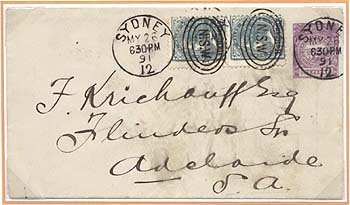 SYDNEY
MY 26
6 30 PM
91
12
NSW
NSW
SYDNEY
MY 26
6 30 PM
91
12
F. Krichauff Esq
Flinders St
Adelaide
S. A.